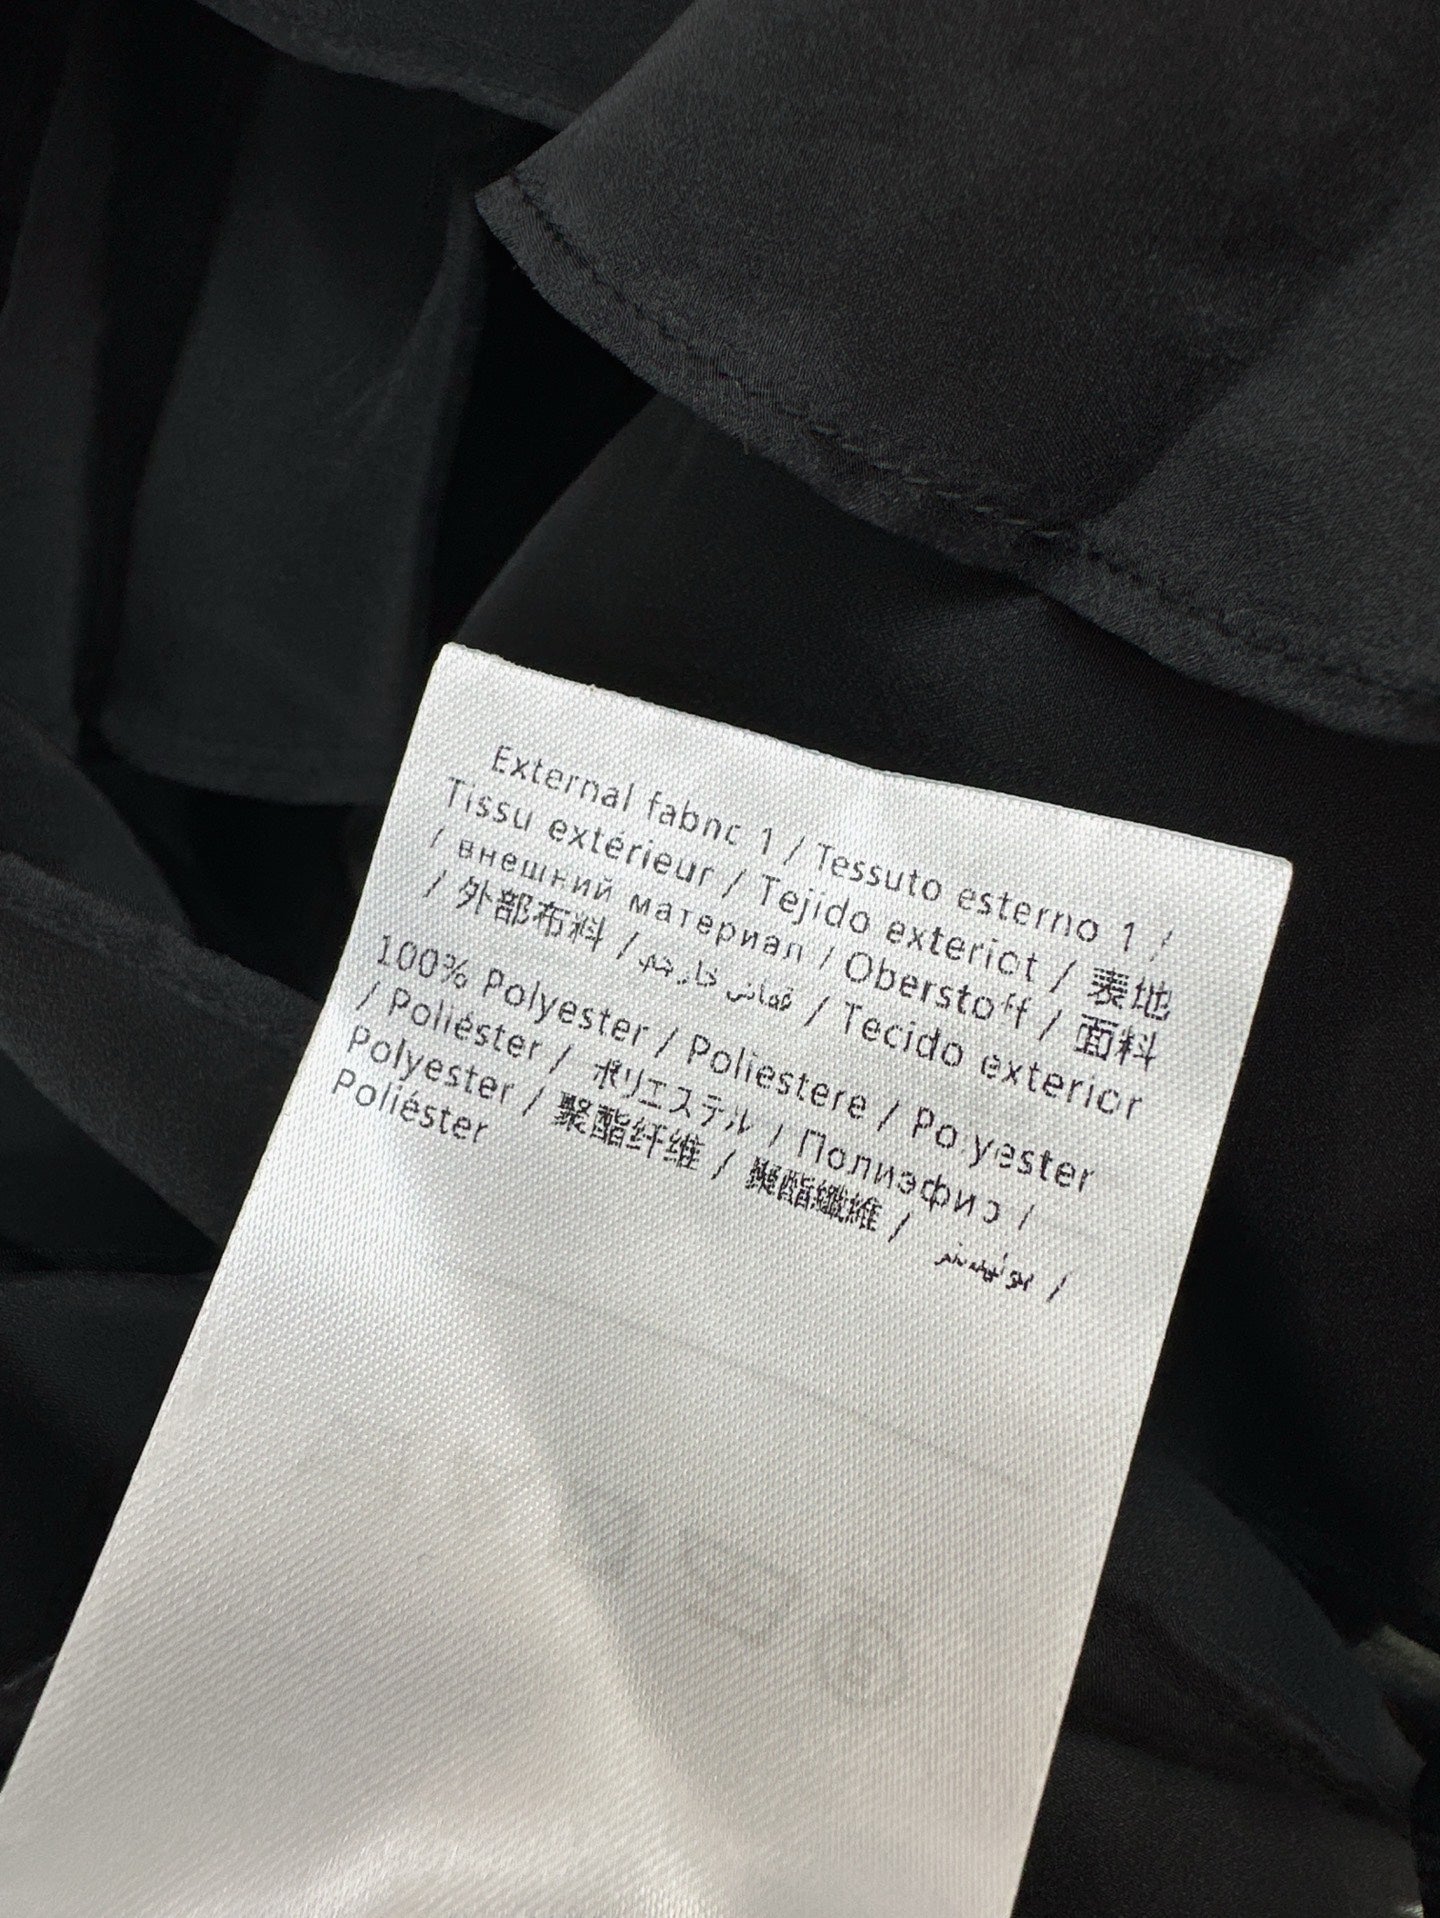 External fabric 1 / Tessuto esterno 1 /
Tissu extérieur / Tejido exterior / 表地
/ внешний материал / Oberstoff / 面料
/ 外部布料 / قماش خارجي / Tecido exterior
100% Polyester / Poliestere / Polyester
/ Poliéster / ポリエステル / Полиэфир /
Polyester / 聚酯纤维 / 聚酯纖維 / بوليستر /
Poliéster